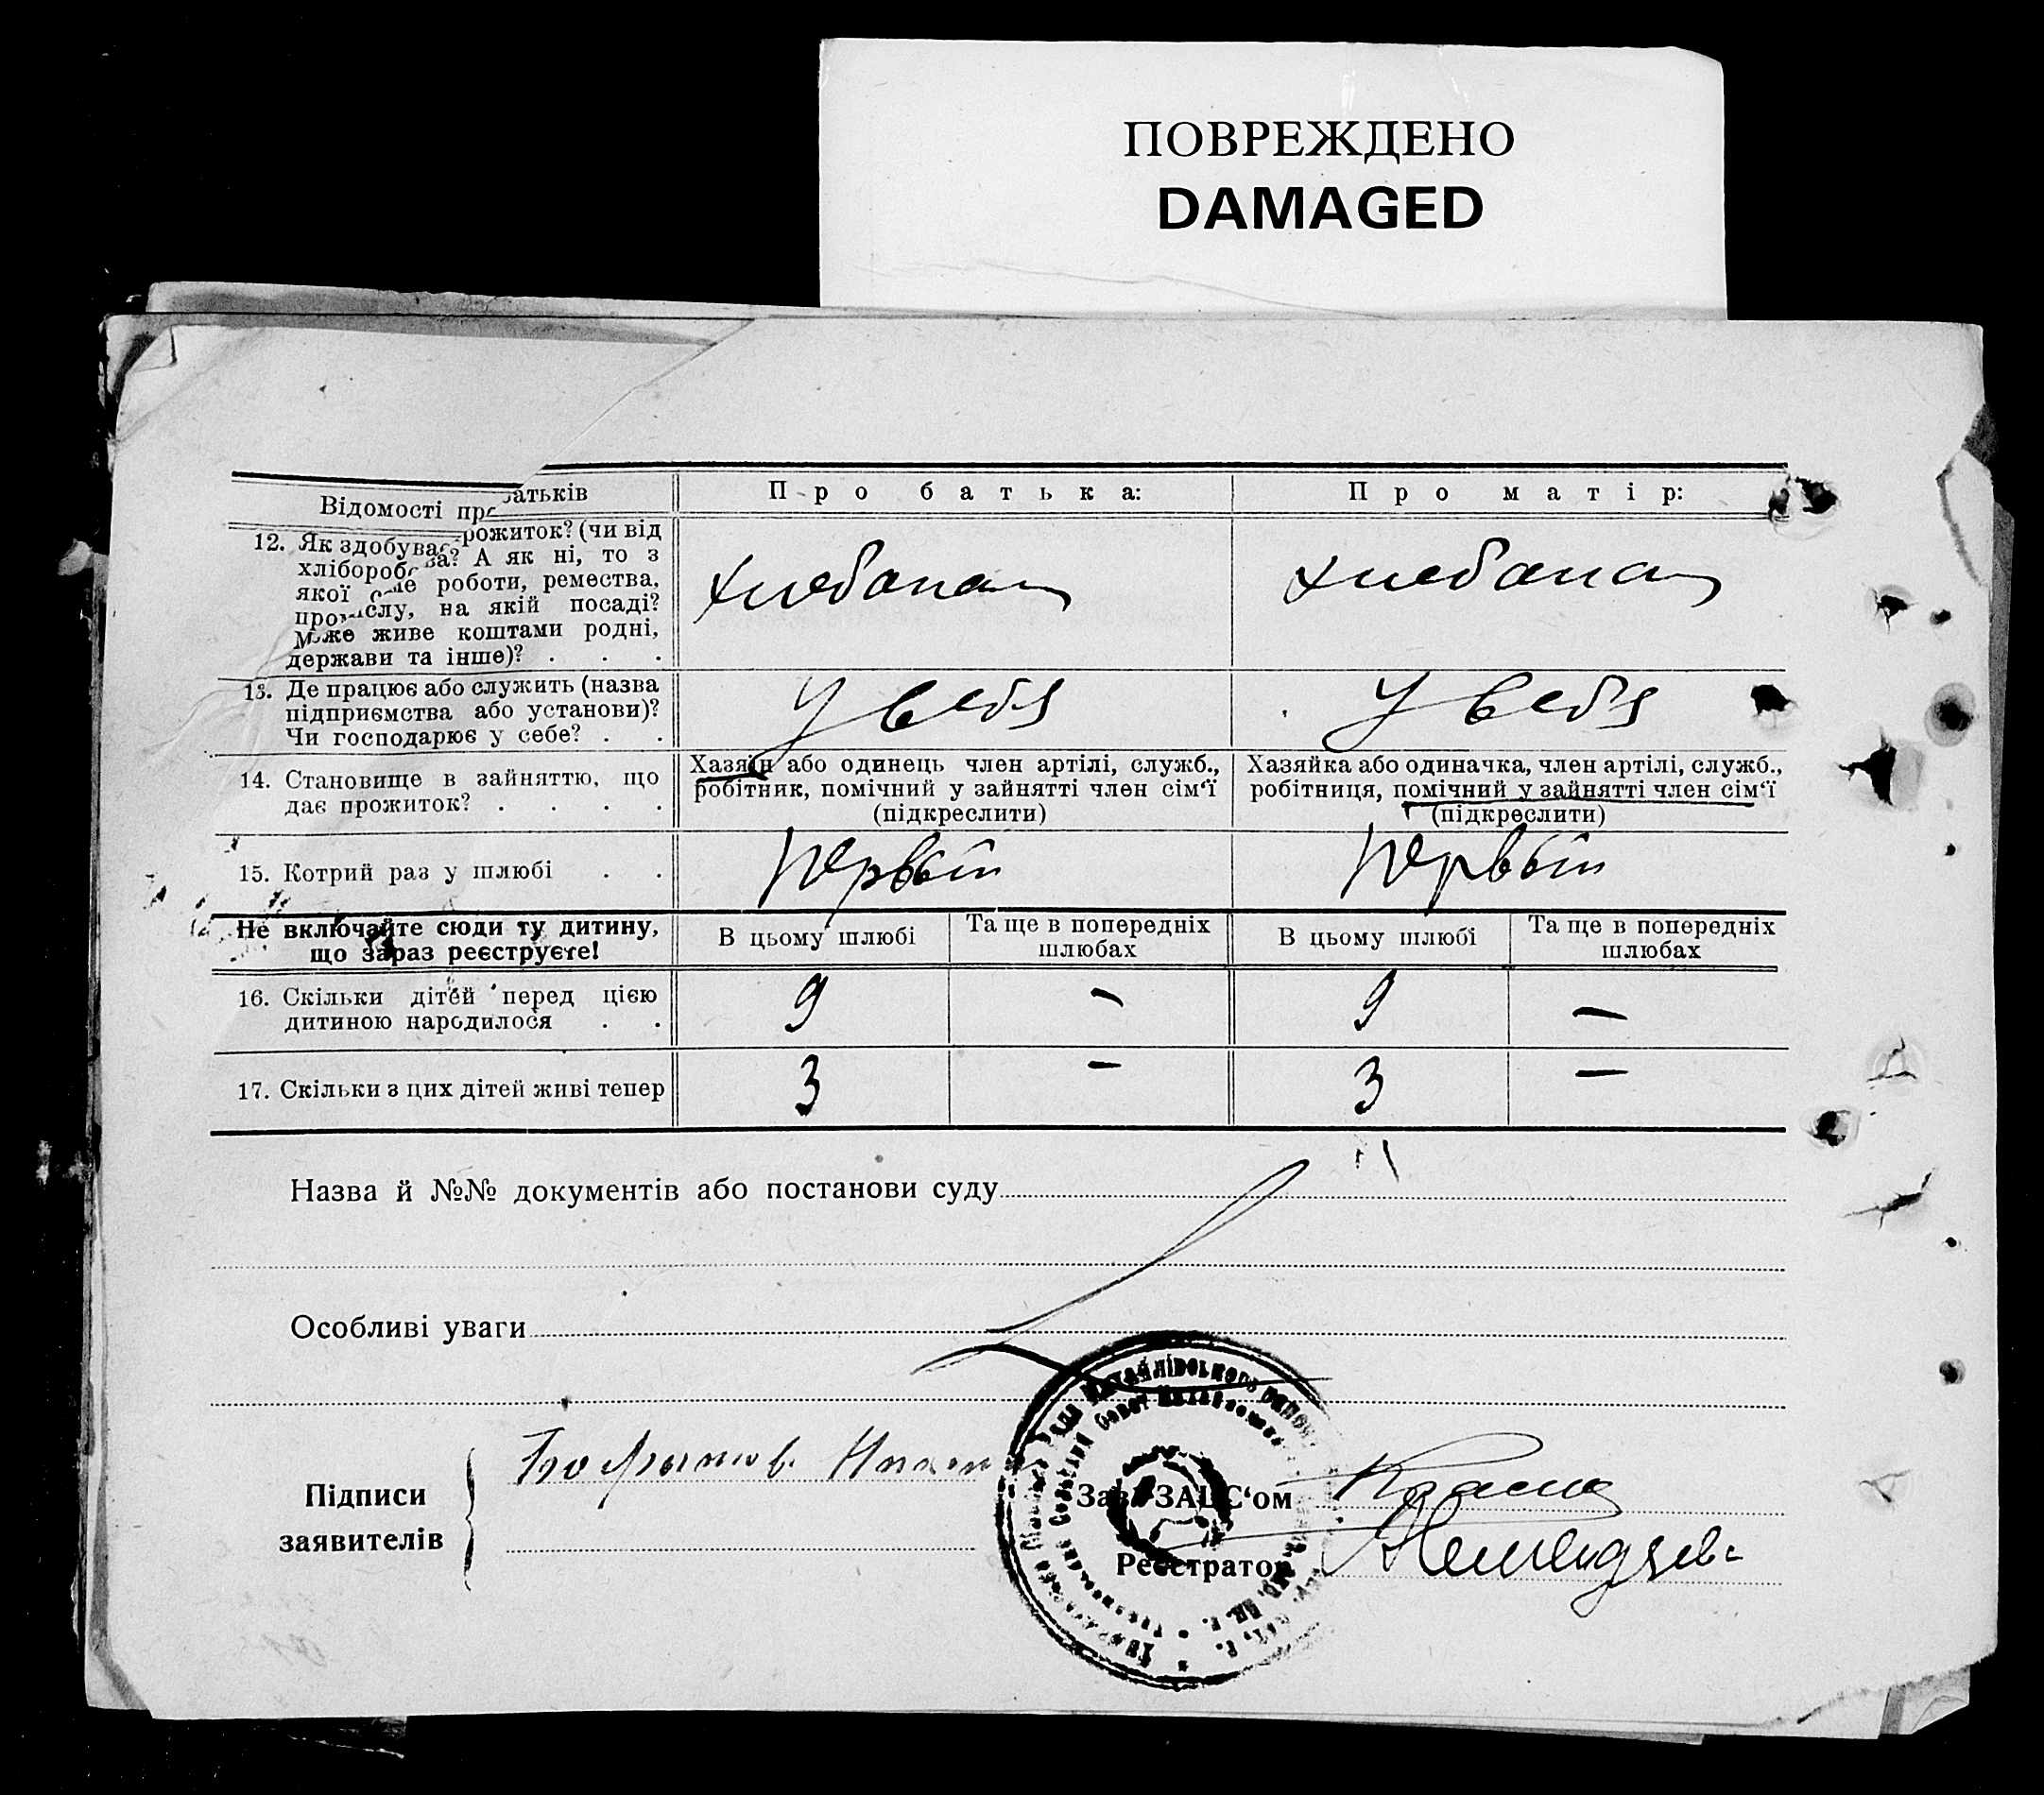 ПОВРЕЖДЕНО
DAMAGED
Відомості про батьків
П р о б а т ь к а:
П р о м а т і р:
12. Як здобуває прожиток? (чи від
хліборобства? А як ні, то з
якої роботи, ремества,
промислу, на якій посаді?
Може живе коштами родні,
держави та інше)? . . .
хлебопаш
хлебопаш
13. Де працює або служить (назва
підприємства або установи)?
Чи господарює у себе? . .
У себя
У себя
14. Становище в зайняттю, що
дає прожиток? . . . .
Хазяїн або одинець член артілі, служб.,
робітник, помічний у зайнятті член сім'ї
(підкреслити)
Хазяйка або одиначка, член артілі, служб.,
робітниця, помічний у зайнятті член сім'ї
(підкреслити)
15. Котрий раз у шлюбі . .
первый
первый
Не включайте сюди ту дитину,
що зараз реєструєте!
В цьому шлюбі
Та ще в попередніх
шлюбах
В цьому шлюбі
Та ще в попередніх
шлюбах
16. Скільки дітей перед цією
дитиною народилося . .
9
–
9
–
17. Скільки з цих дітей живі тепер
3
–
3
–
Назва й №№ документів або постанови суду
Особливі уваги
Підписи
заявителів
Зав. ЗАЦС'ом
Реєстратор